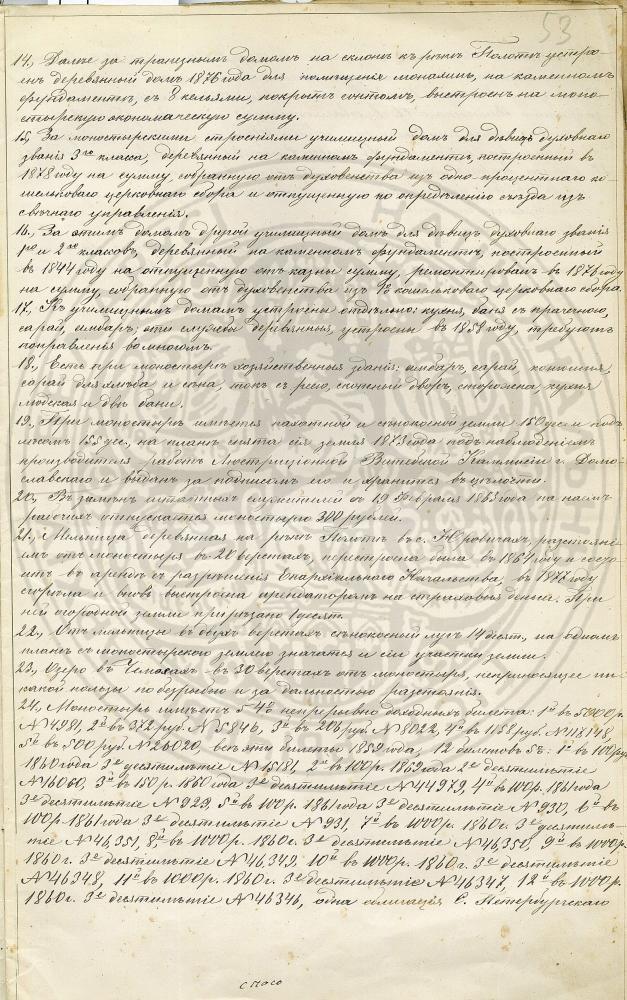 53
14., Далѣе за трапезнымъ домомъ на склонѣ къ рѣкѣ Полотѣ устро-
енъ деревянный домъ 1876 года для помѣщенія монахинь, на каменномъ
фундаментѣ, съ 8 кельями, покрытъ гонтомъ, выстроенъ на мона-
стырскую экономическую сумму.
15., За монастырскими строеніями училищный домъ для дѣвицъ духовнаго
званія 3го класса, деревянный на каменномъ фундаментѣ, построенный въ
1878 году на сумму, собранную отъ духовенства изъ одно процентнаго ко-
шельковаго церковнаго сбора и отпущенную по опредѣленію съѣзда изъ
свѣчнаго управленія.
16., За этимъ домомъ другой училищный домъ для дѣвицъ духовнаго званія
1го и 2го классовъ, деревянный на каменномъ фундаментѣ, построенный
въ 1844 году на отпущенную отъ казны сумму, ремонтированъ въ 1876 году
на сумму, собранную отъ духовенства изъ 1% кошельковаго церковнаго сбора.
17., Къ училищнымъ домамъ устроены отдѣльно: кухня, баня съ прачешною,
сарай, амбаръ; эти службы деревянныя, устроены въ 1858 году, требуютъ
поправленія во многомъ.
18., Есть при монастырѣ хозяйственныя зданія: амбаръ, сарай, конюшня,
сарай для хлѣба и сѣна, токъ съ реею, скотный дворъ, сторожка, кухня
людская и двѣ бани.
19., При монастырѣ имѣется пахатной и сѣнокосной земли 150 дес. и подъ
лѣсомъ 155 дес., на планъ снята сія земля 1873 года подъ наблюденіемъ
производителя работъ Люстраціонной Витебской Коммисіи г. Домо-
славскаго и выданъ за подписомъ его и хранится въ цѣлости.
20., Въ замѣнъ штатныхъ служителей съ 19 Февраля 1863 года на наемъ
рабочихъ отпускается монастырю 300 рублей.
21., Мельница деревянная на рѣкѣ Полотѣ въ с. Юровичахъ, разстояні-
емъ отъ монастыря въ 20 верстахъ, перестроена была въ 1864 году и состо-
итъ въ арендѣ съ разрѣшенія Епархіальнаго Начальства, въ 1877 году
сгорѣла и вновь выстроена арендаторомъ на страховыя деньги. При
ней огородной земли прирѣзано 1 десят.
22., Отъ мельницы въ двухъ верстахъ сѣнокосный лугъ 14 десят., на одномъ
планѣ съ монастырскою землею значатся и сіи участки земли.
23., Озеро въ въ 30 верстахъ отъ монастыря, неприносящее ни-
какой пользы по безрыбію и за дальностью разстоянія.
24., Монастырь имѣетъ 5 4% непрерывно доходныхъ билета: 1й въ 5000 р.
№ 4981, 2й въ 372 руб. № 5846, 3й въ 206 руб. № 8022, 4й въ 1158 руб. № 118148,
5й въ 500 руб. № 26020, всѣ эти билеты 1859 года, 12 билетовъ 5%: 1й въ 100 руб.
1860 года 3е десятилѣтіе № 15181, 2й въ 100 р. 1869 года 2е десятилѣтіе
№ 16060, 3й въ 150 р. 1860 года 3е десятилѣтіе № 44973, 4й въ 100 р. 1861 года
3е десятилѣтіе № 929, 5й въ 100 р. 1861 года 3е десятилѣтіе № 930, 6й въ
100 р. 1861 года 3е десятилѣтіе № 931, 7й въ 1000 р. 1860 г. 3е десятилѣ-
тіе № 46351, 8й въ 1000 р. 1860 г. 3е десятилѣтіе № 46350, 9й въ 1000 р.
1860 г. 3е десятилѣтіе № 46349, 10й въ 1000 р. 1860 г. 3е десятилѣтіе
№ 46348, 11й въ 1000 р. 1860 г. 3е десятилѣтіе № 46347, 12й въ 1000 р.
1860 г. 3е десятилѣтіе № 46346, одна облигація С. Петербургскаго
Спасо